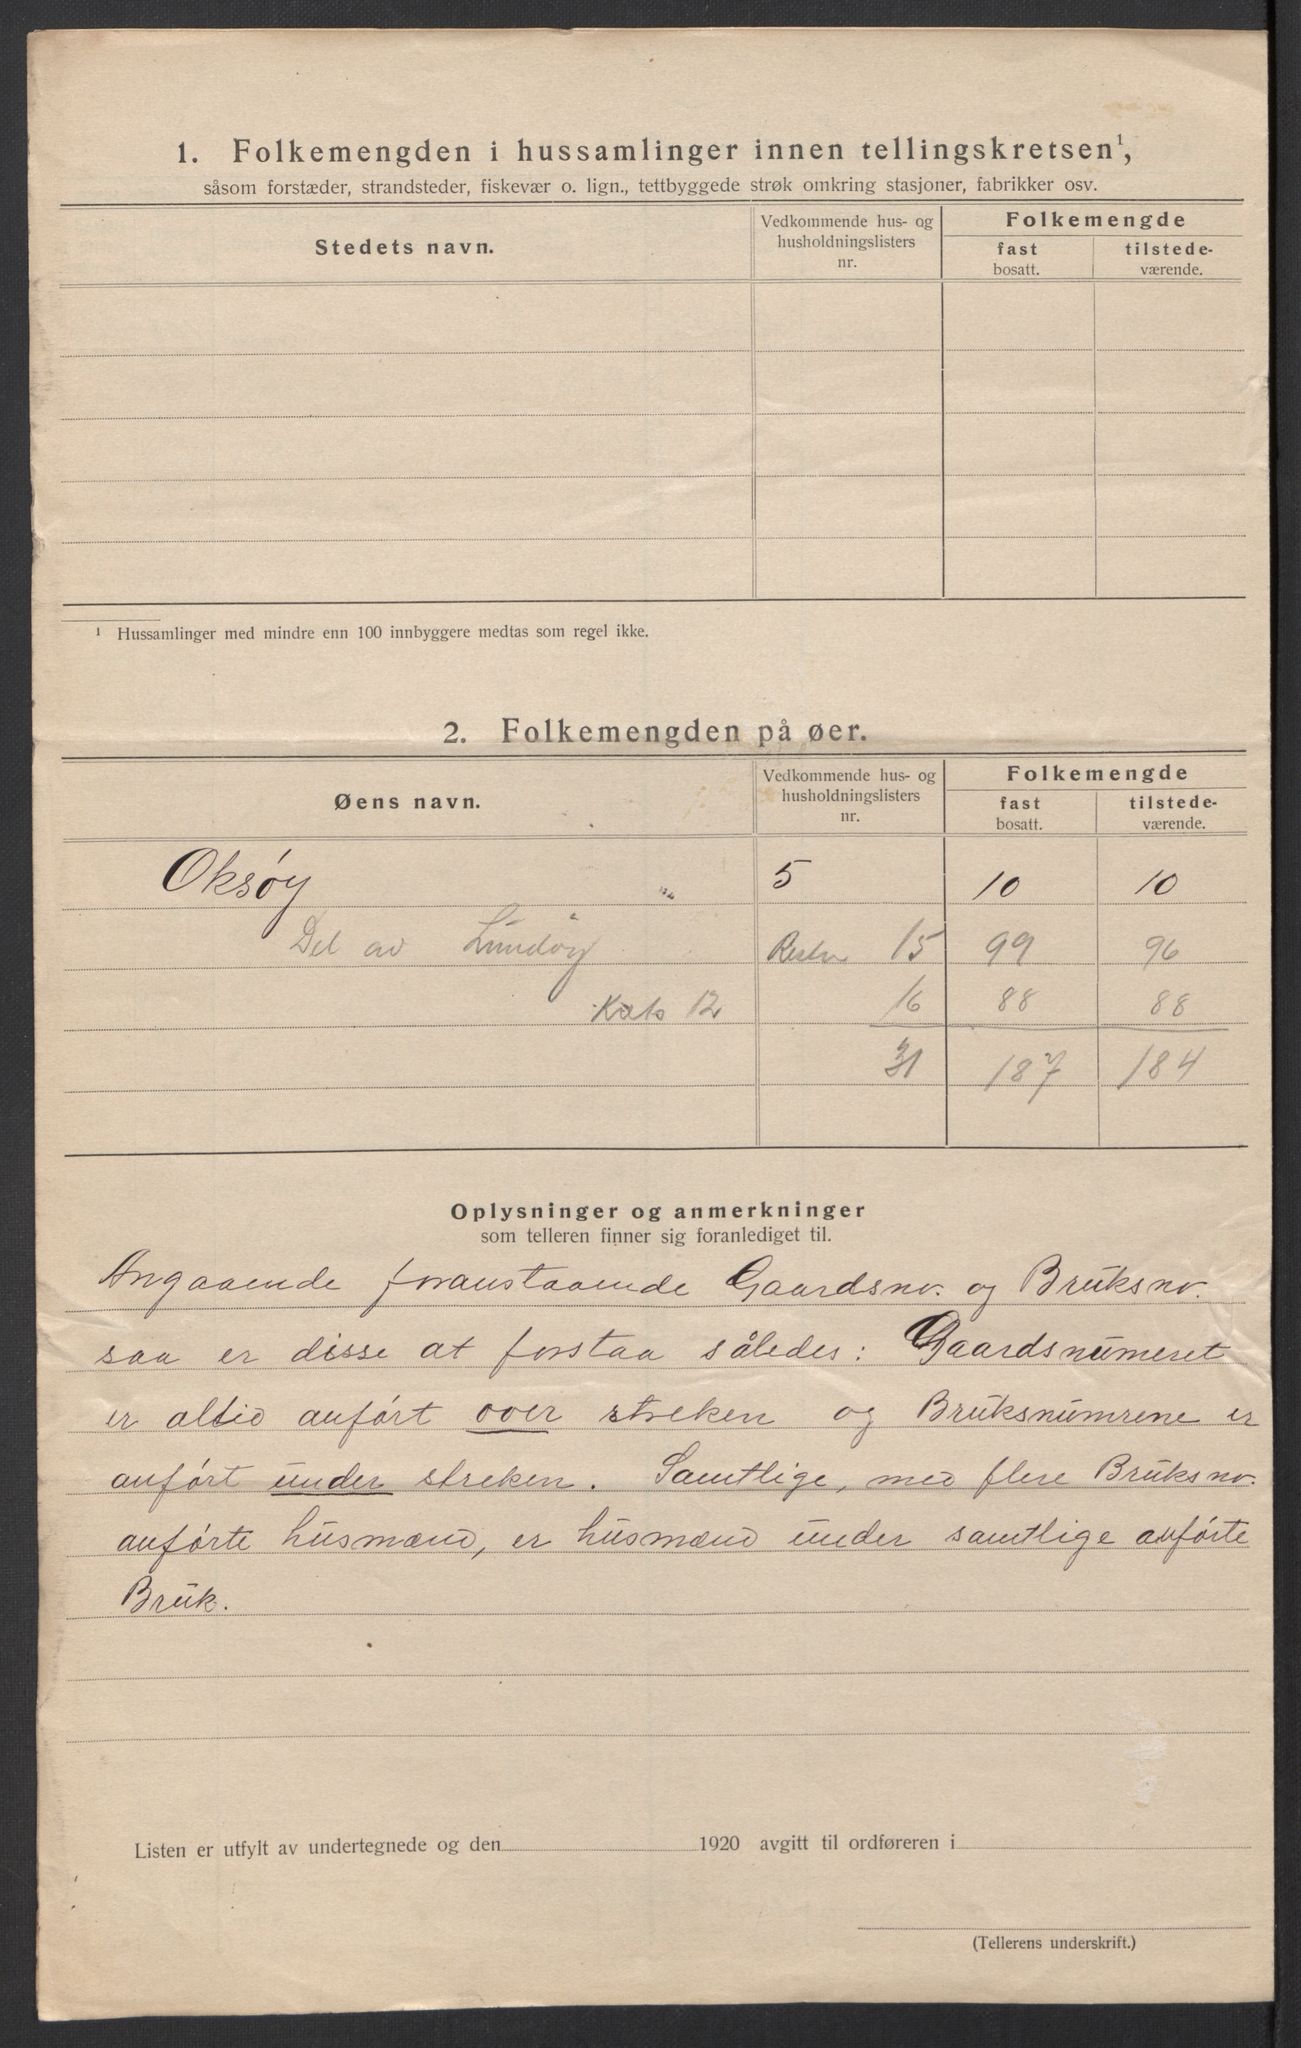 1. Folkemengden i hussamlinger innen tellingskretsen¹,
såsom forstæder, strandsteder, fiskevær o. lign., tettbyggede strøk omkring stasjoner, fabrikker osv.
Stedets navn.
Vedkommende hus- og husholdningslisters nr.
Folkemengde
fast bosatt.
tilstede-værende.
¹ Hussamlinger med mindre enn 100 innbyggere medtas som regel ikke.
2. Folkemengden på øer.
Øens navn.
Vedkommende hus- og husholdningslisters nr.
Folkemengde
fast bosatt.
tilstede-værende.
Oksøy " 5 10 10
Del av Lundøy Resten 15 99 96
12 16 88 88
31 187 184
Oplysninger og anmerkninger
som telleren finner sig foranlediget til.
Angaaende foranstaaende Gaardsnr. og Bruksnr.
saa er disse at forstaa således: Gaardsnumeret
er altid anført over streken og Bruksnumrene er
anført under streken. Samtlige, med flere Bruksnr.
anførte husmænd, er husmænd under samtlige anførte
Bruk.
Listen er utfylt av undertegnede og den 1920 avgitt til ordføreren i
(Tellerens underskrift.)